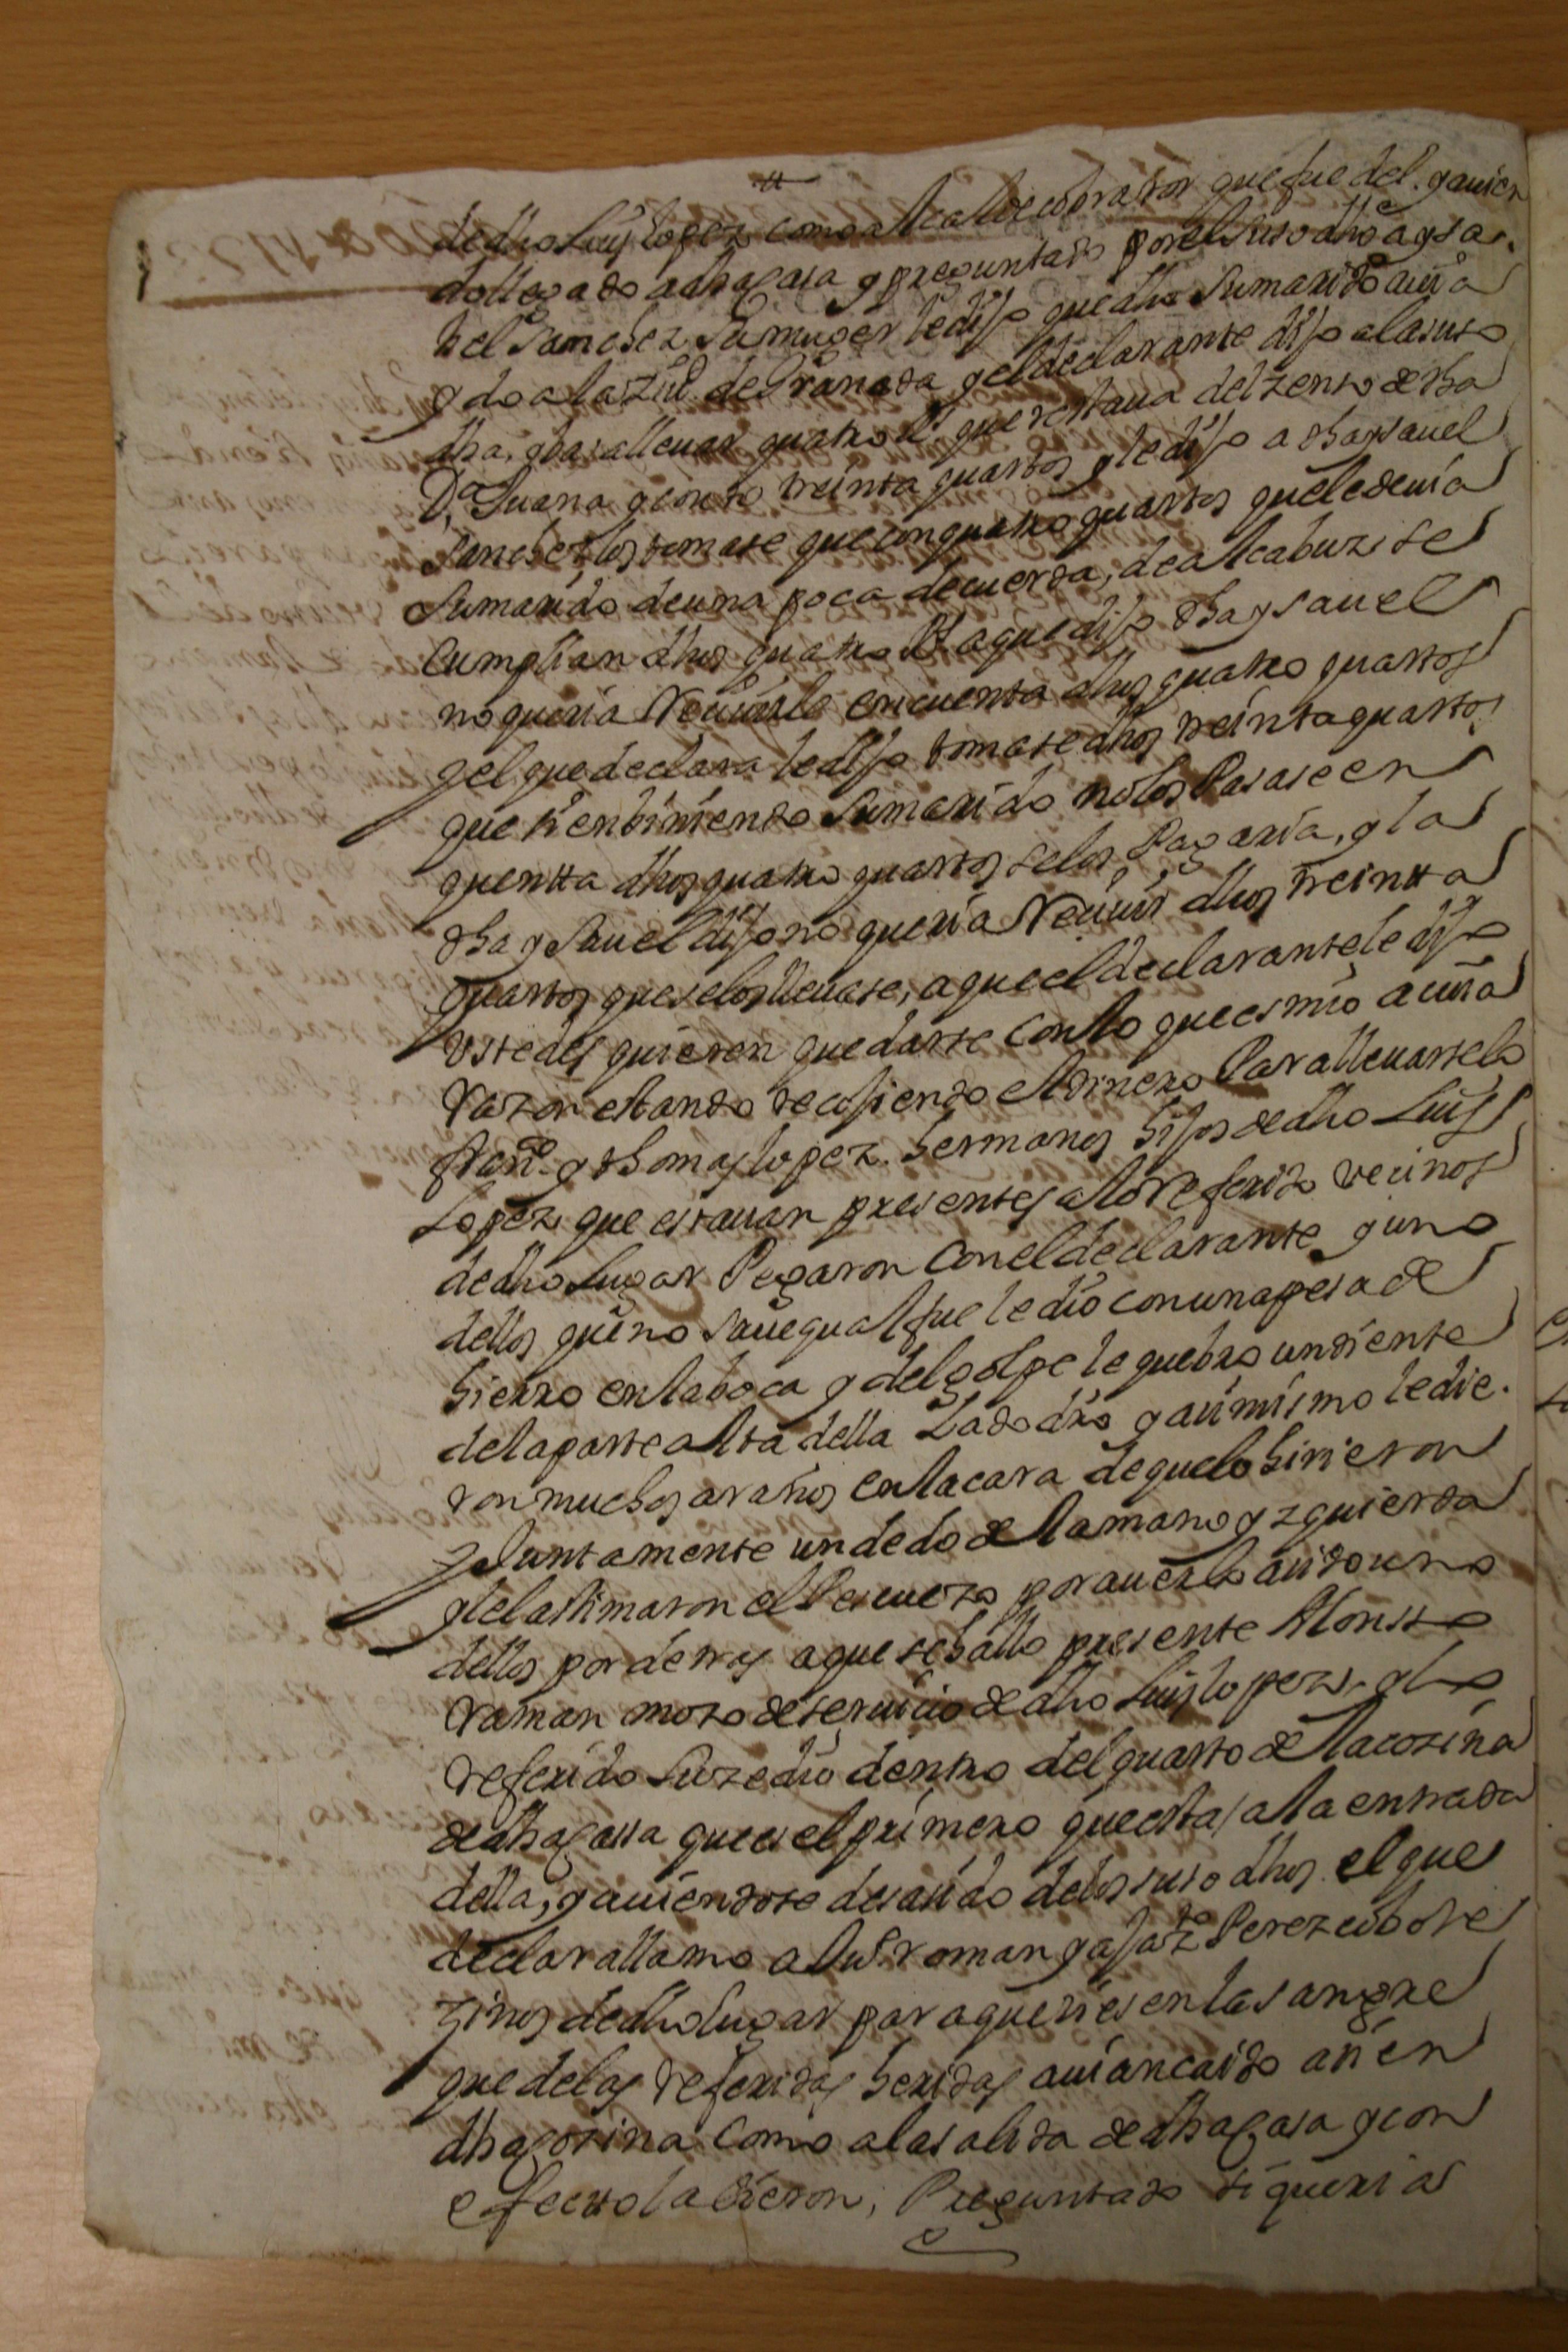 de dho Luis lopez como alcalde cobrador que fue del. y auien
do llegado a dha casa y preguntado por el suso dho a ysa
bel Sanchez su muger le dijo que dho su marido auia
ydo a la ziud de Granada y el declarante dijo a la suso
dha. yba a lleuar quatro Rs que restaua del zenso de dha
Da Juana y conto treinta quartos y le dijo a dha ysauel
sanchez los tomase que con quatro quartos que le deuia
su marido de una poca de cuerda, de alcabuz se
cumplian dhos quatro Rs a que dijo dha ysauel
no queria Reciuirle en cuenta dhos quatro quartos
y el que declara le dijo tomase dhos treinta quartos
que si en biniendo su marido no los Pasase en
quentta dhos quatro quartos se los Pagaria, y la
dha ysauel dijo no queria Reciuir dhos treintta
quartos que se los lleuase, a que el declarante le dijo
ustedes quieren quedarse con lo que es mio a cuia
razon estando recojiendo el dinero Para lleuarselo
franco y thomas lopez. hermanos hijos de dho Luis
Lopez que estauan presentes a lo referido vecinos
de dho lugar Pegaron con el declarante y uno
dellos que no saue qual fue le dio con una pesa de
hierro en la boca y del golpe le quebro un diente
de la parte alta della Lado dro y asimismo le die
ron muchos araños en la cara de que lo hirieron
y Juntamente un dedo de la mano yzquierda
y le lastimaron el Pescuezo por auerlo asido uno
dellos por detras a que se hallo presente Alonsso
raman mozo de seruicio de dho Luis lopez, y lo
referido suzedio dentro del quarto de la cozina
de dha cassa que es el primero que esta a la entrada
della, y auiendose desasido de los suso dhos. el que
declara llamo a Luis roman y a Perez cobo ve
zinos de dho lugar para que viesen la sangre
que de las referidas heridas auian caido asi en
dha cozina como a la salida de dha casa y con
efectto la bieron, Preguntado si queria